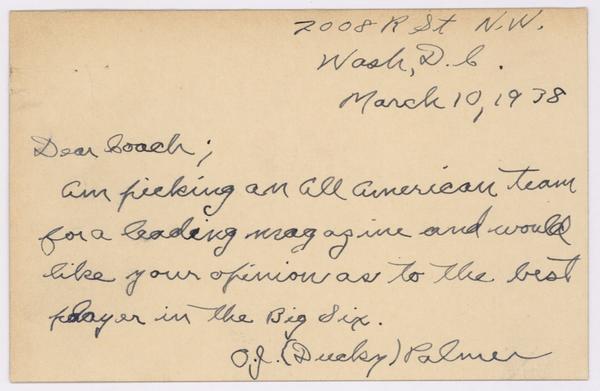 2008 R St N.W.
Wash, D.C.
March 10, 1938
Dear Coach;
am picking an all american team
for a leading magazine and would
like your opinion as to the best
player in the Big Six.
O.J. (Ducky) Palmer